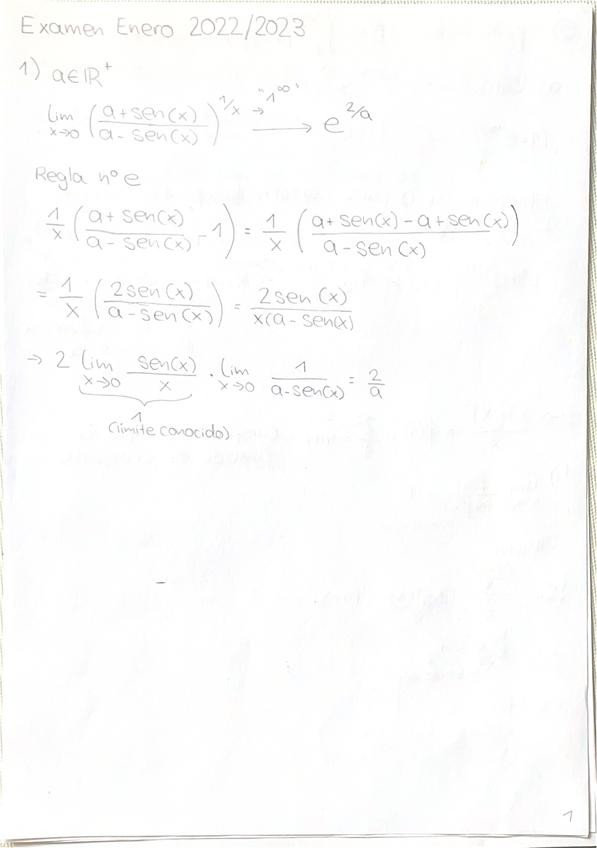 Examen Enero 2022/2023
1) a∈ℝ⁺
lim x→0 (a+sen(x) / a-sen(x))^(1/x) → "1^∞" ⟶ e^(2/a)
Regla nº e
1/x (a+sen(x) / a-sen(x) - 1) = 1/x (a+sen(x)-a+sen(x) / a-sen(x))
= 1/x (2sen(x) / a-sen(x)) = 2sen(x) / x(a-sen(x)
→ 2 lim x→0 sen(x)/x · lim x→0 1 / a-sen(x) = 2/a
1
(límite conocido)
1